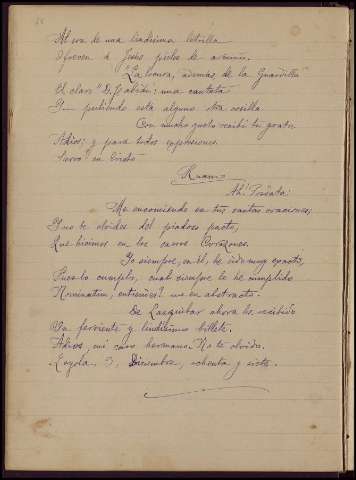 Al son de una lindísima letrilla
Ofrecen á Jesús pieles de armiño.
"La locura, además de la Guardilla"
El claro "D. Fabián: una cantata
Y pidiendo esta alguna otra cosilla
Con mucho gusto recibí tu grata
Adios; y para todos expresiones.
Siervo en Cristo
Ruano
Ah! Posdata:
Me encomiendo en tus santas oraciones;
Y no te olvides del piadoso pacto,
Que hicimos en los caros Corazones.
Yo siempre, en él, he sido muy exacto,
Pues lo cumplo, cual siempre le he cumplido
Nominatim, entiendes? no en abstracto.
De Lasquibar ahora he recibido
Un ferviente y lindísimo billete.
Adios, mi caro hermano. No te olvido.
Loyola, 3, Diciembre, ochenta y siete.